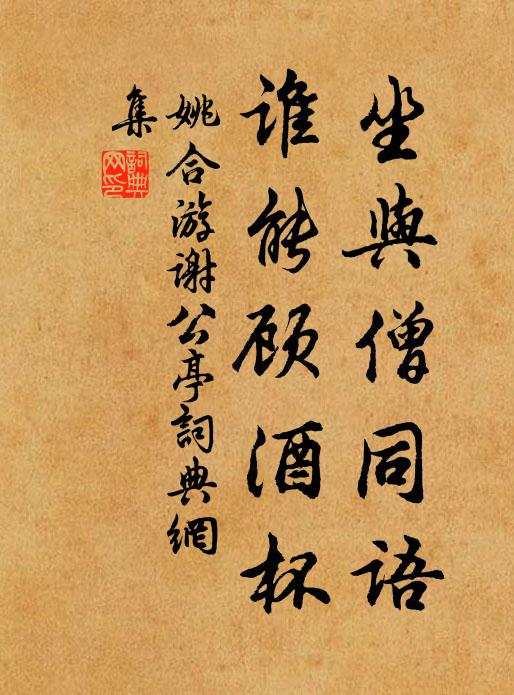 坐與僧同語
誰能顾酒杯
姚合游谢公亭詞典網
集
詞典
网印